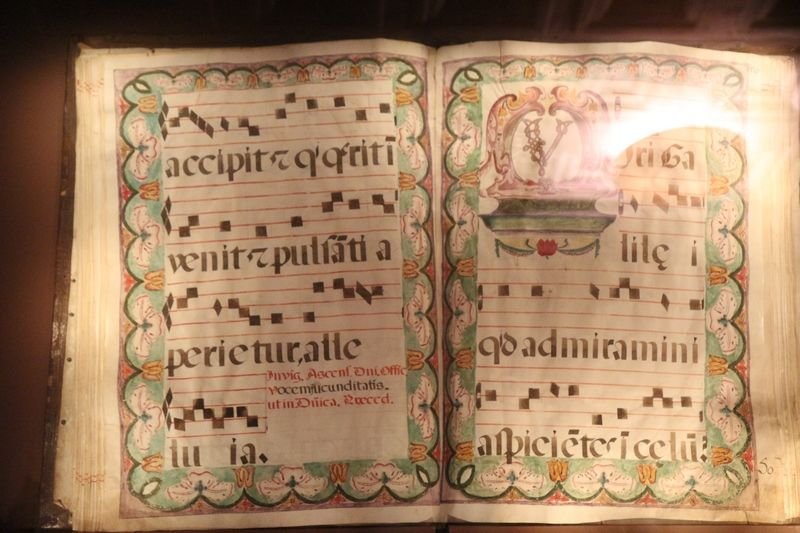 accipit ⁊ q̓ q̃rit ī
venit ⁊ pulsāti a
perietur, alle
Invig. Ascens. Dni. Offic
vocem jucunditatis.
ut in Dñica. Præced.
lu ia.
V iri Ga
lilę i
qd admiramini
aspiciētes ī celū?